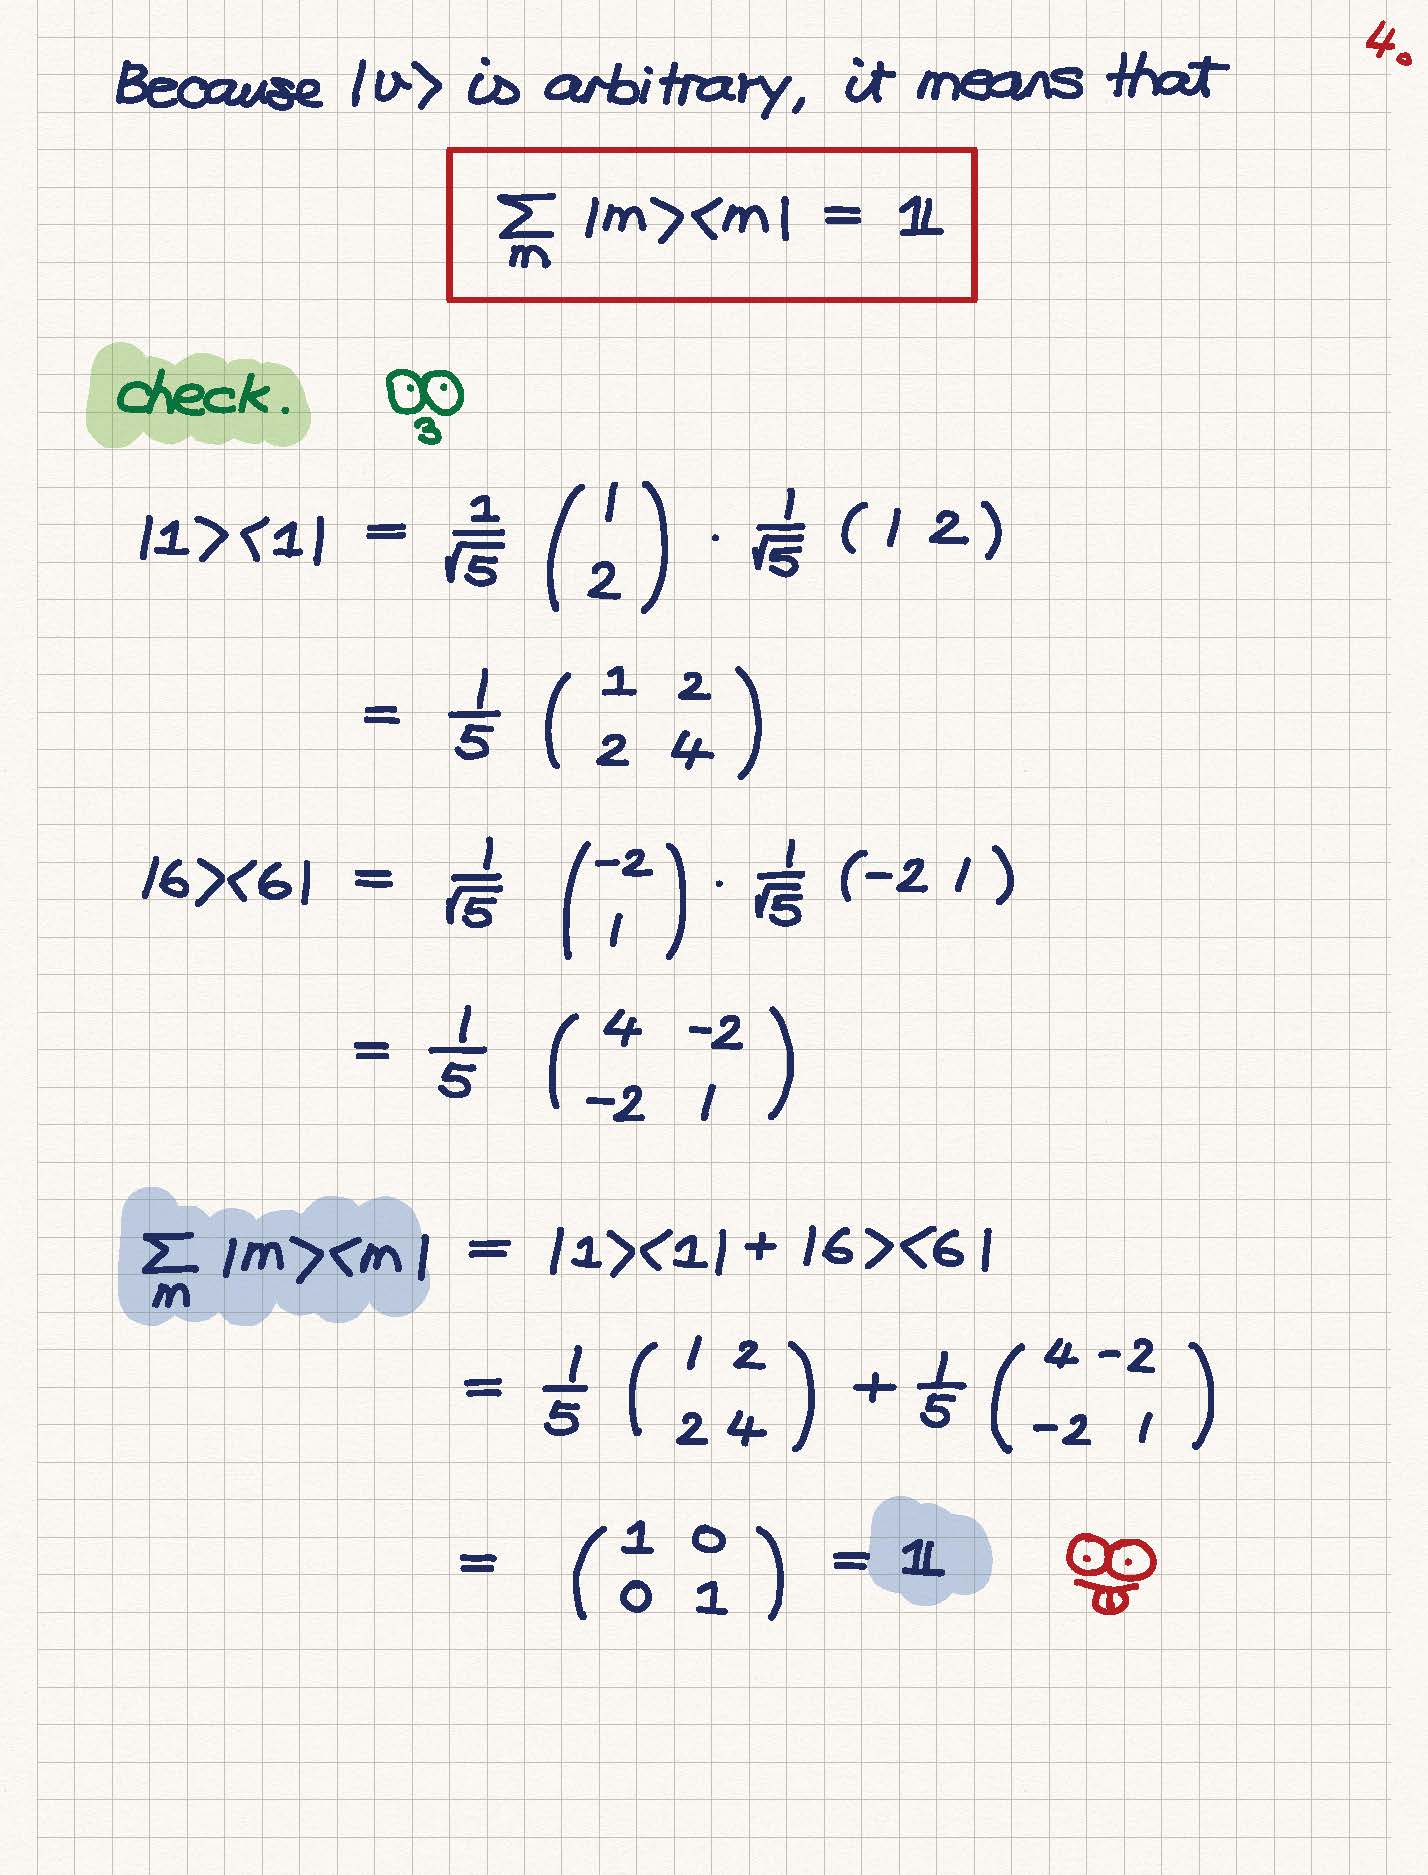 4.
Because |v> is arbitrary, it means that
∑ |m><m| = 𝟙
m
check.
|1><1| = 1/√5 (1 2) · 1/√5 (1 2)
= 1/5 (1 2
2 4)
|6><6| = 1/√5 (-2 1) · 1/√5 (-2 1)
= 1/5 (4 -2
-2 1)
∑ |m><m| = |1><1| + |6><6|
m
= 1/5 (1 2 + 1/5 (4 -2
2 4) -2 1)
= (1 0 = 𝟙
0 1)